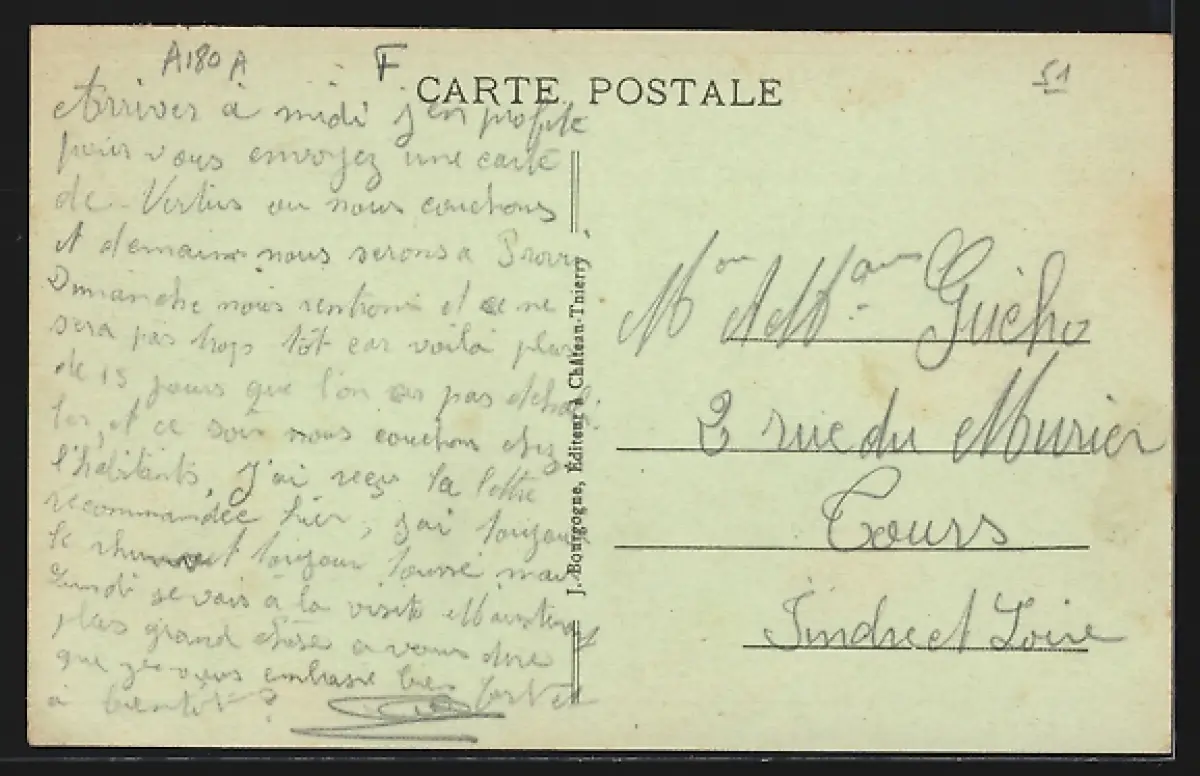 A180A
F
51
CARTE POSTALE
Arriver à midi j'en profite
pour vous envoyez une carte
de Vertus ou nous couchons
et demain nous serons a
Dimanche nous rentrons et ce ne
sera pas trop tôt car voilà plus
de 15 jours que l'on as pas
et ce soir nous couchons chez
l'habitants, J'ai reçu la lettre
recommandée hier, j'ai toujours
le rhume et toujour mais
Lundi je vais à la visite
plus grand chose a vous dire
que je vous embrasse bien fort et
à bientôt
J. Bourgogne, Éditeur à Château-Thierry
Guého
2 rue du Murier
Tours
Indre et Loire